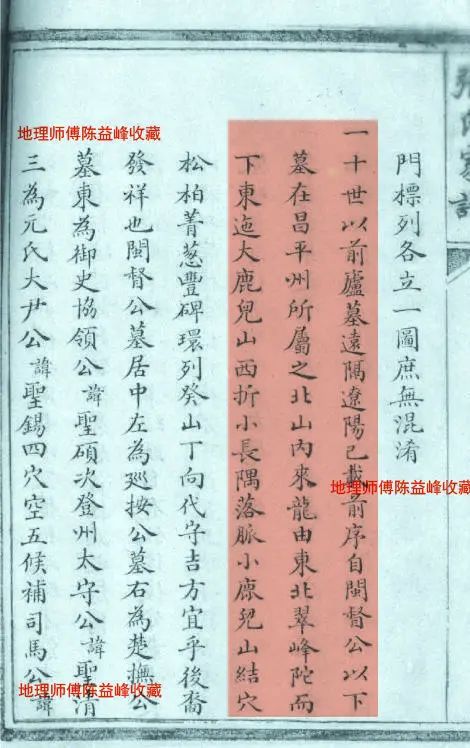 門標列各立一圖庶無混淆
一十世以前廬墓遠隔遼陽已載前序自閩督公以下
墓在昌平州所屬之北山內來龍由東北翠峰陀而
下東迤大鹿兒山西折小長隅落脈小鹿兒山結穴
松柏菁葱豐碑環列癸山丁向代守吉方宜乎後裔
發祥也閩督公墓居中左為巡按公墓右為楚撫公
墓東為御史協領公諱聖碩次登州太守公諱聖清
三為元氏大尹公諱聖錫四穴空五候補司馬公諱
地理师傅陈益峰收藏
地理师傅陈益峰收藏
地理师傅陈益峰收藏